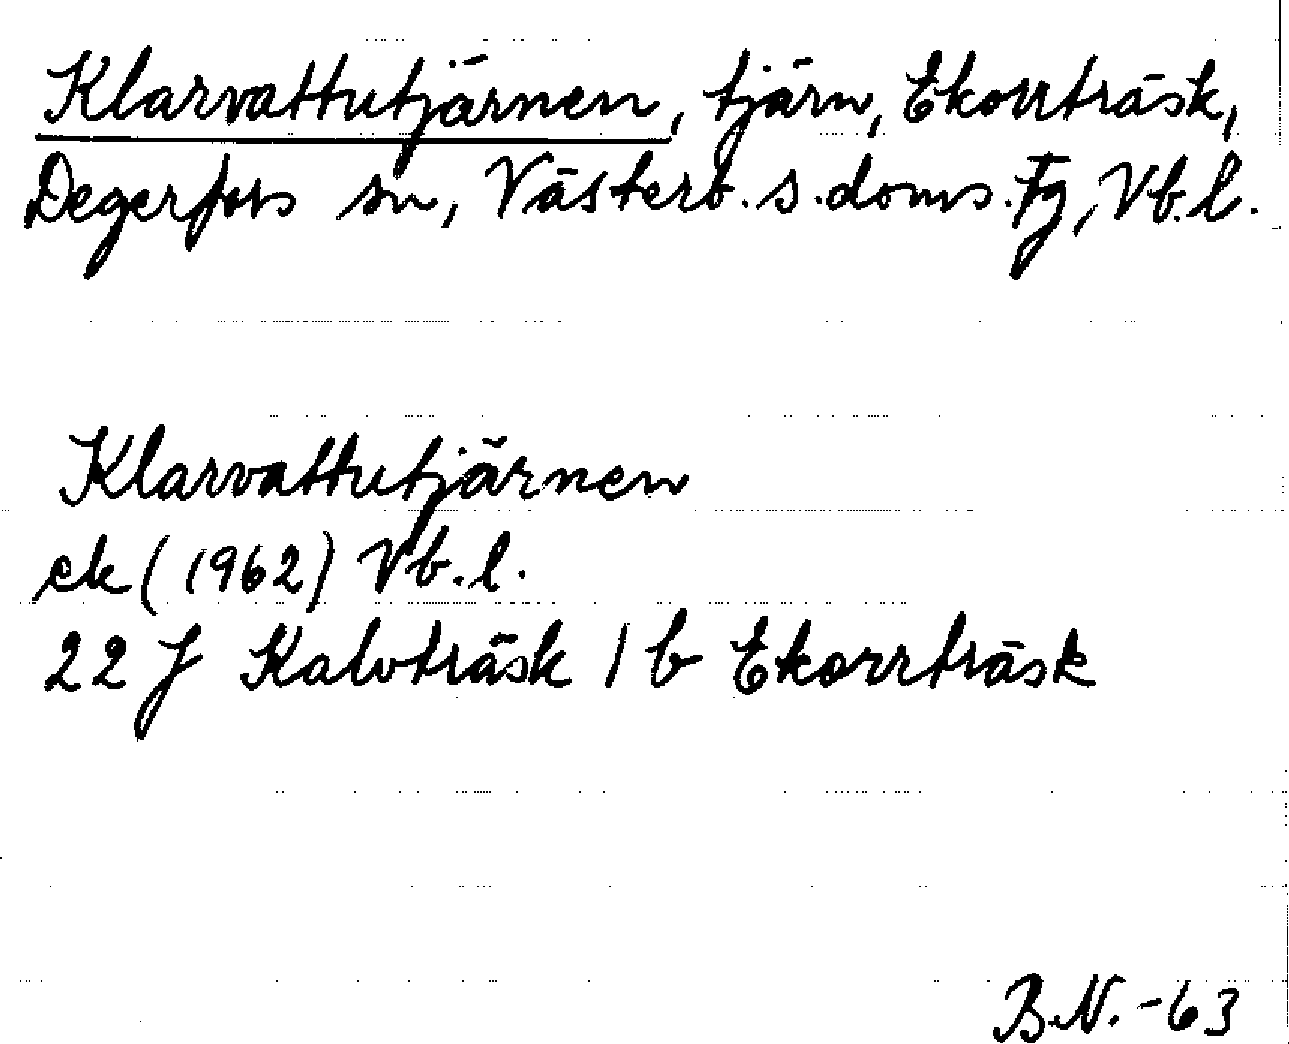 Klarvattutjärnen, tjärn, Ekorrträsk,
Degerfors sn, Västerb. s. doms. Fg, Vb. l.
Klarvattutjärnen
ek (1962) Vb. l.
22 J Kalvträsk 1 b Ekorrträsk
B.N. -63